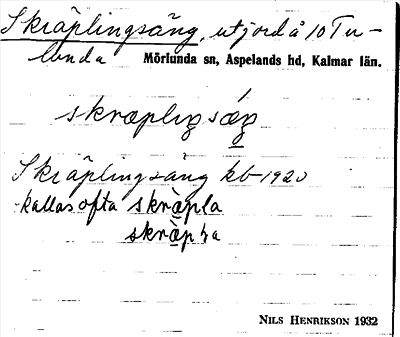 Skräplingsäng, utjord å 10 Tu-
lunda Mörlunda sn, Aspelands hd, Kalmar län.
skræpligsǽg
Skräplingsäng kb 1920
kallas ofta skræ̀pla
skræ̀pra
NILS HENRIKSON 1932